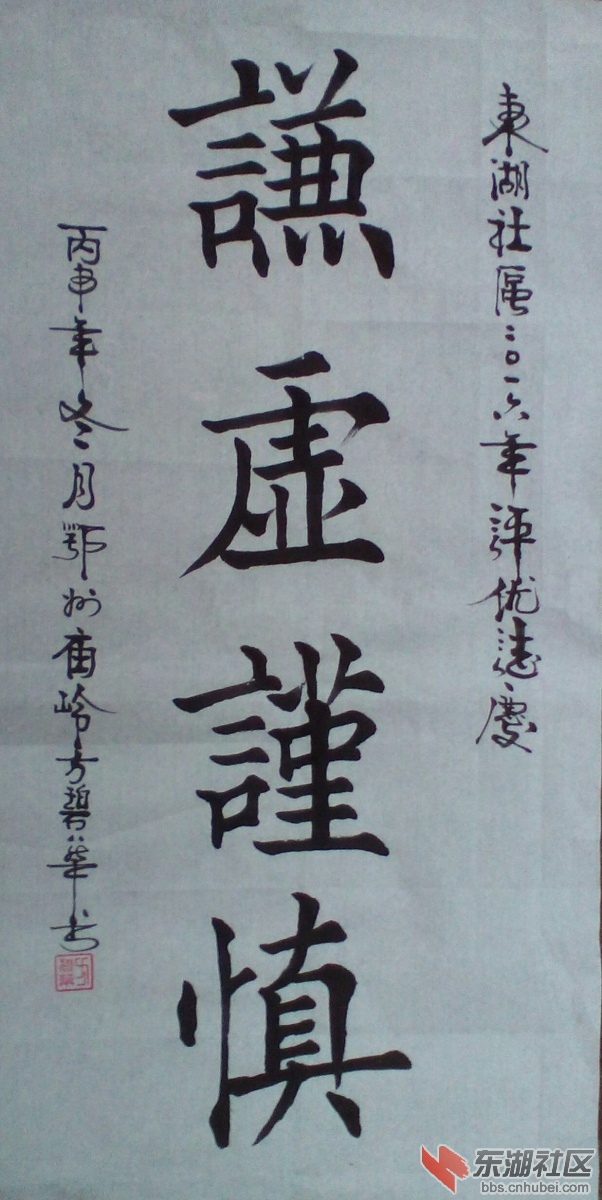 東湖社區二〇一六年評优誌慶
謙虛謹慎
丙申年冬月鄂州庙岭方碧華书
东湖社区
bbs.cnhubei.com